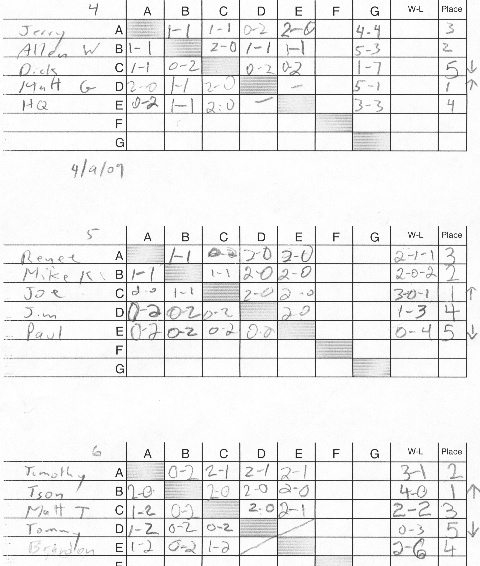 4 A B C D E F G W-L Place
Jerry A 1-1 1-1 0-2 2-0 4-4 3
Allen W B 1-1 2-0 1-1 1-1 5-3 2
Dick C 1-1 0-2 0-2 0-2 1-7 5 ↓
Matt G D 2-0 1-1 2-0 - 5-1 1 ↑
HQ E 0-2 1-1 2:0 - 3-3 4
F
G
4/9/09
5 A B C D E F G W-L Place
Renee A 1-1 0-2 2-0 2-0 2-1-1 3
Mike K. B 1-1 1-1 2-0 2-0 2-0-2 2
Joe C 2-0 1-1 2-0 2-0 3-0-1 1 ↑
Jim D 0-2 0-2 0-2 2-0 1-3 4
Paul E 0-2 0-2 0-2 0-0 0-4 5 ↓
F
G
6 A B C D E F G W-L Place
Timothy A 0-2 2-1 2-1 2-1 3-1 2
Tson B 2-0 2-0 2-0 2-0 4-0 1 ↑
Matt T C 1-2 0-2 2-0 2-1 2-2 3
Tommy D 1-2 0-2 0-2 0-3 5 ↓
E 1-2 0-2 1-2 2-6 4